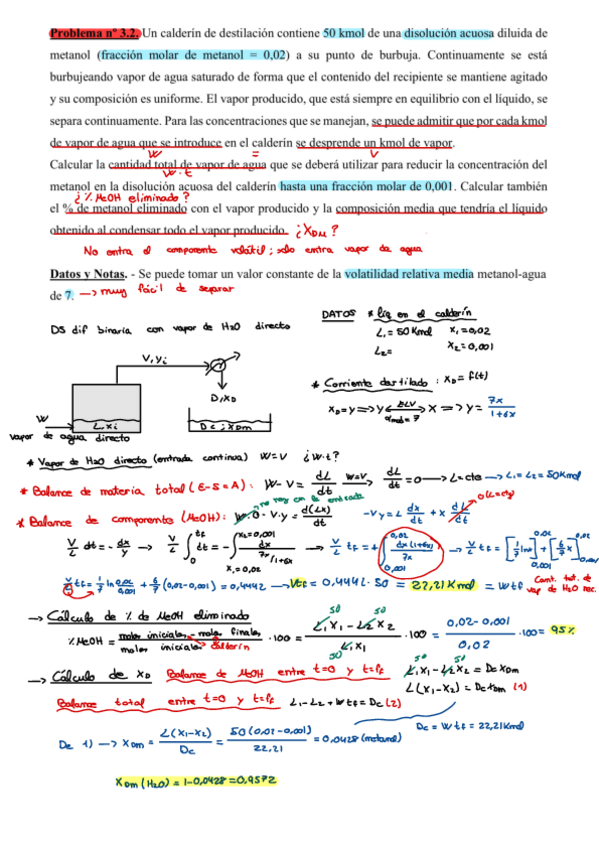 Problema nº 3.2. Un calderín de destilación contiene 50 kmol de una disolución acuosa diluida de
metanol (fracción molar de metanol = 0,02) a su punto de burbuja. Continuamente se está
burbujeando vapor de agua saturado de forma que el contenido del recipiente se mantiene agitado
y su composición es uniforme. El vapor producido, que está siempre en equilibrio con el líquido, se
separa continuamente. Para las concentraciones que se manejan, se puede admitir que por cada kmol
de vapor de agua que se introduce en el calderín se desprende un kmol de vapor.
W = V
Calcular la cantidad total de vapor de agua que se deberá utilizar para reducir la concentración del
W·t
metanol en la disolución acuosa del calderín hasta una fracción molar de 0,001. Calcular también
¿% MeOH eliminado?
el % de metanol eliminado con el vapor producido y la composición media que tendría el líquido
obtenido al condensar todo el vapor producido. ¿XDM?
No entra el componente volátil; solo entra vapor de agua
Datos y Notas. - Se puede tomar un valor constante de la volatilidad relativa media metanol-agua
de 7. → muy fácil de separar
DS dif binaria con vapor de H2O directo
DATOS * liq en el calderín
L1 = 50 Kmol x1 = 0,02
L2 = x2 = 0,001
V, yi
* Corriente destilado: xD = f(t)
D, xD
xD = y → y ELV x → y = 7x / 1+6x
αmed = 7
W
L, xi
Dc; xDM
vapor de agua directo
* Vapor de H2O directo (entrada continua) W=V ¿W·t?
* Balance de materia total (E-S=A): W - V = dL/dt W=V → dL/dt = 0 → L = cte → L1 = L2 = 50 Kmol
no hay en la entrada
* Balance de componente (MeOH): W·0 - V·y = d(Lx)/dt -Vy = L dx/dt + x dL/dt 0 (L=cte)
V/L dt = - dx/y → V/L ∫0 tf dt = - ∫ x1=0,02 x2=0,001 dx / 7x/1+6x → V/L tf = + ∫ 0,001 0,02 dx(1+6x) / 7x → V/L tf = [1/7 lnx] 0,001 0,02 + [6/7 x] 0,001 0,02
V/L tf = 1/7 ln 0,02/0,001 + 6/7 (0,02-0,001) = 0,4442 → Vtf = 0,4442·50 = 22,21 Kmol = Wtf Cant. tot. de vap de H2O nec.
→ Cálculo de % de MeOH eliminado
% MeOH = moles iniciales - moles finales / moles iniciales calderín · 100 = L1x1 - L2x2 / L1x1 · 100 = 0,02-0,001 / 0,02 · 100 = 95%
→ Cálculo de xD Balance de MeOH entre t=0 y t=tf L1x1 - L2x2 = Dc xDM
L(x1-x2) = Dc xDM (1)
Balance total entre t=0 y t=tf L1 - L2 + Wtf = Dc (2)
Dc = Wtf = 22,21 Kmol
De 1) → xDM = L(x1-x2) / Dc = 50(0,02-0,001) / 22,21 = 0,0428 (metanol)
xDM (H2O) = 1-0,0428 = 0,9572